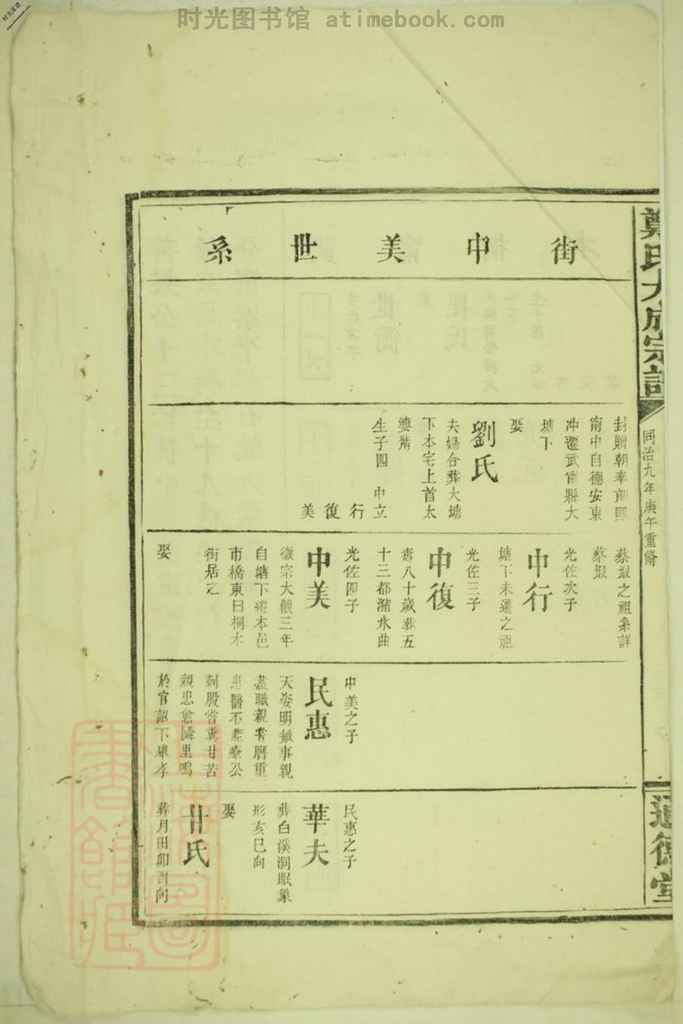 时光图书馆 atimebook.com
鄭氏大成宗譜
同治九年庚午重脩
道德堂
街中美世系
封贈朝奉
甯中自德安東
冲遷武甯縣大
塘下
娶
劉氏
夫婦合葬大塘
下本宅上首太
婆觜
生子四 中立
行
復
美
蔡嘏之祖系詳
蔡嘏
光佐次子
中行
塘下未遷之祖
光佐三子
中復
壽八十歲葬五
十三都潴水曲
光佐四子
中美
徽宗大觀三年
自塘下遷本邑
市橋東曰桐木
街居之
娶
中美之子
民惠
天姿明敏事親
盡職親嘗膺重
患醫不差療公
刲股嘗糞甘苦
親忠愈隣里鳴
於官詔下雄孝
民惠之子
華夫
葬白溪洞眠象
形亥巳向
娶
甘氏
葬月田卯酉向